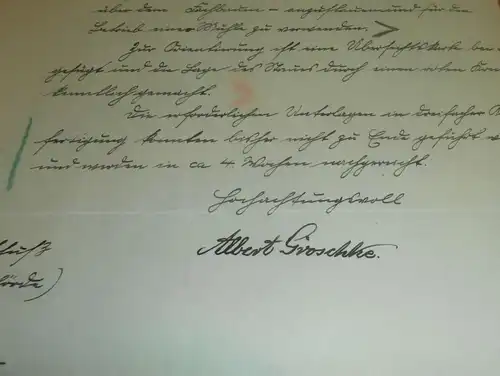 über dem Fachbaum – anzustauen und für den
Betrieb einer Mühle zu verwenden.
Zur Orientierung ist eine Übersichtskarte bei
gefügt und die Lage des Staues durch einen roten
kenntlich gemacht.
Die erforderlichen Unterlagen in dreifacher
fertigung konnten bisher nicht zu Ende geführt
und werden in ca 4 Wochen nachgereicht.
Hochachtungsvoll
Albert Groschke.